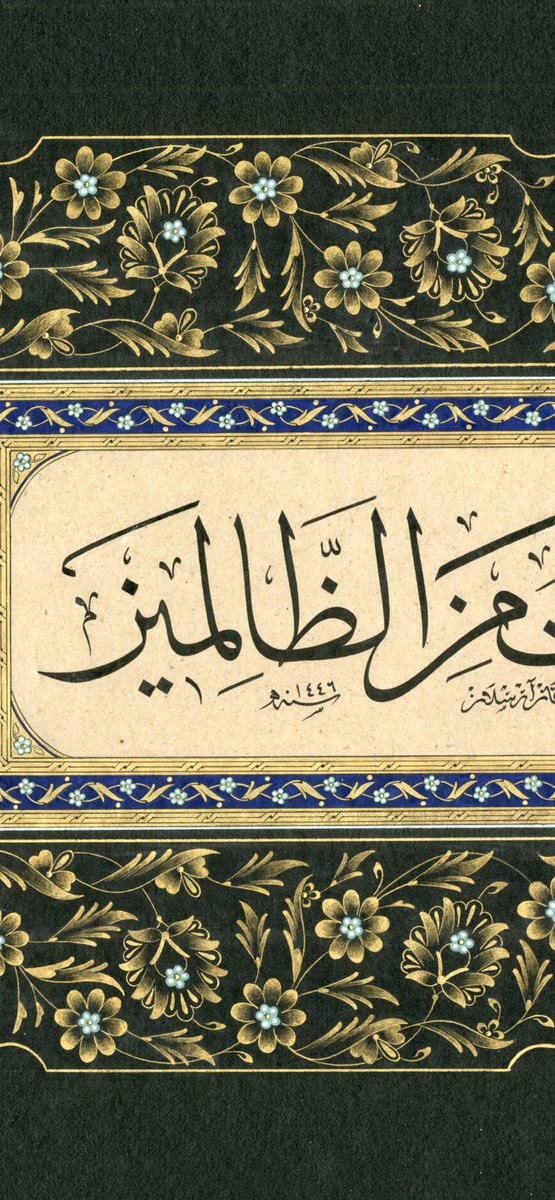 من الظالمين
سنه ١٤٤٦